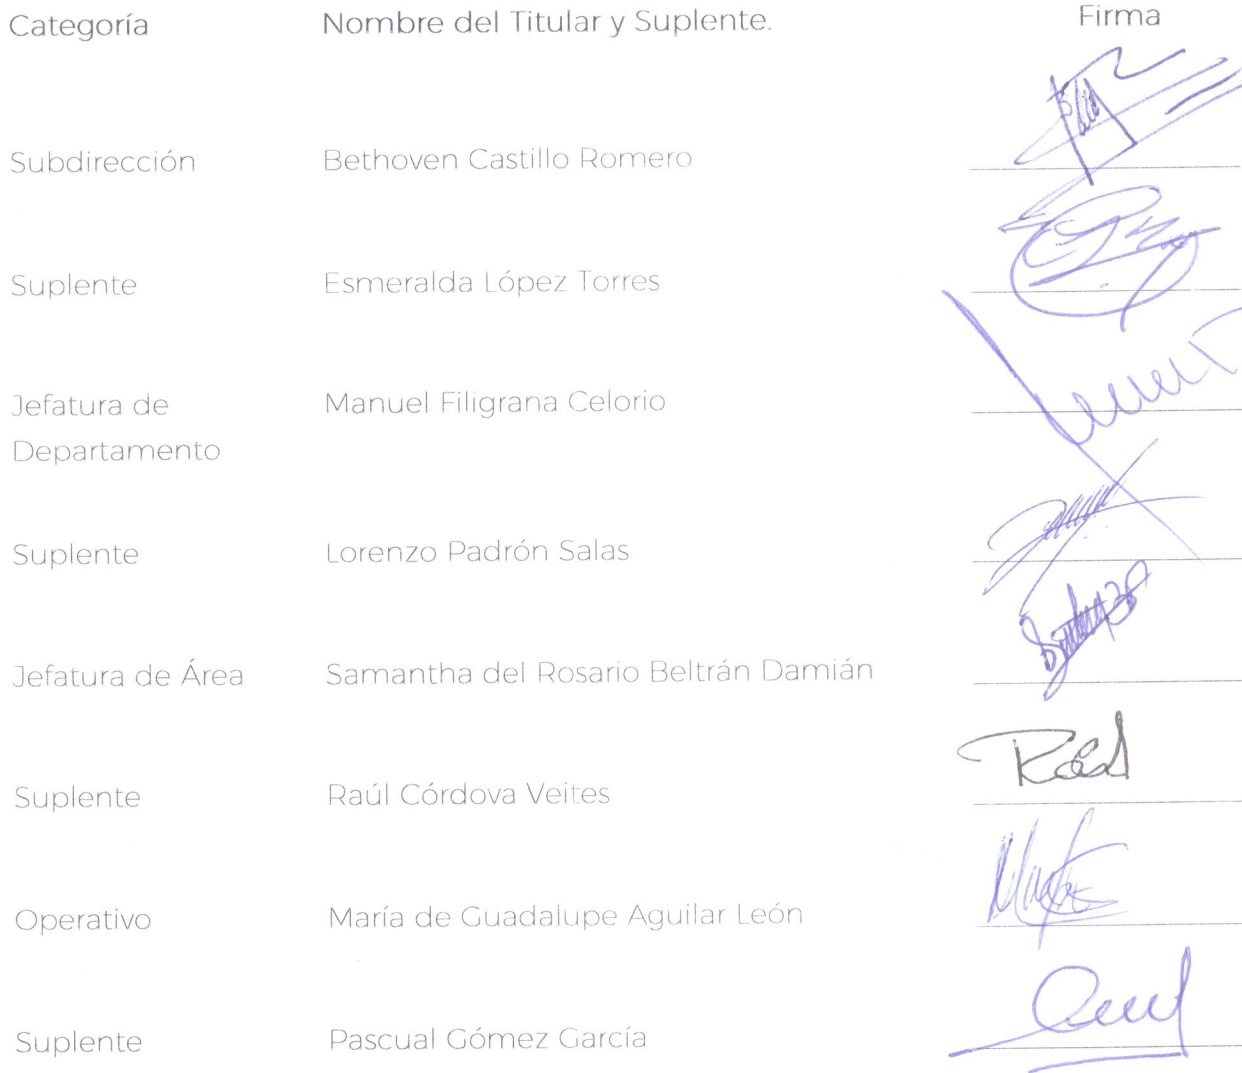 Categoría Nombre del Titular y Suplente. Firma
Subdirección Bethoven Castillo Romero
Suplente Esmeralda López Torres
Jefatura de Manuel Filigrana Celorio
Departamento
Suplente Lorenzo Padrón Salas
Jefatura de Área Samantha del Rosario Beltrán Damián
Suplente Raúl Córdova Veites
Operativo María de Guadalupe Aguilar León
Suplente Pascual Gómez García